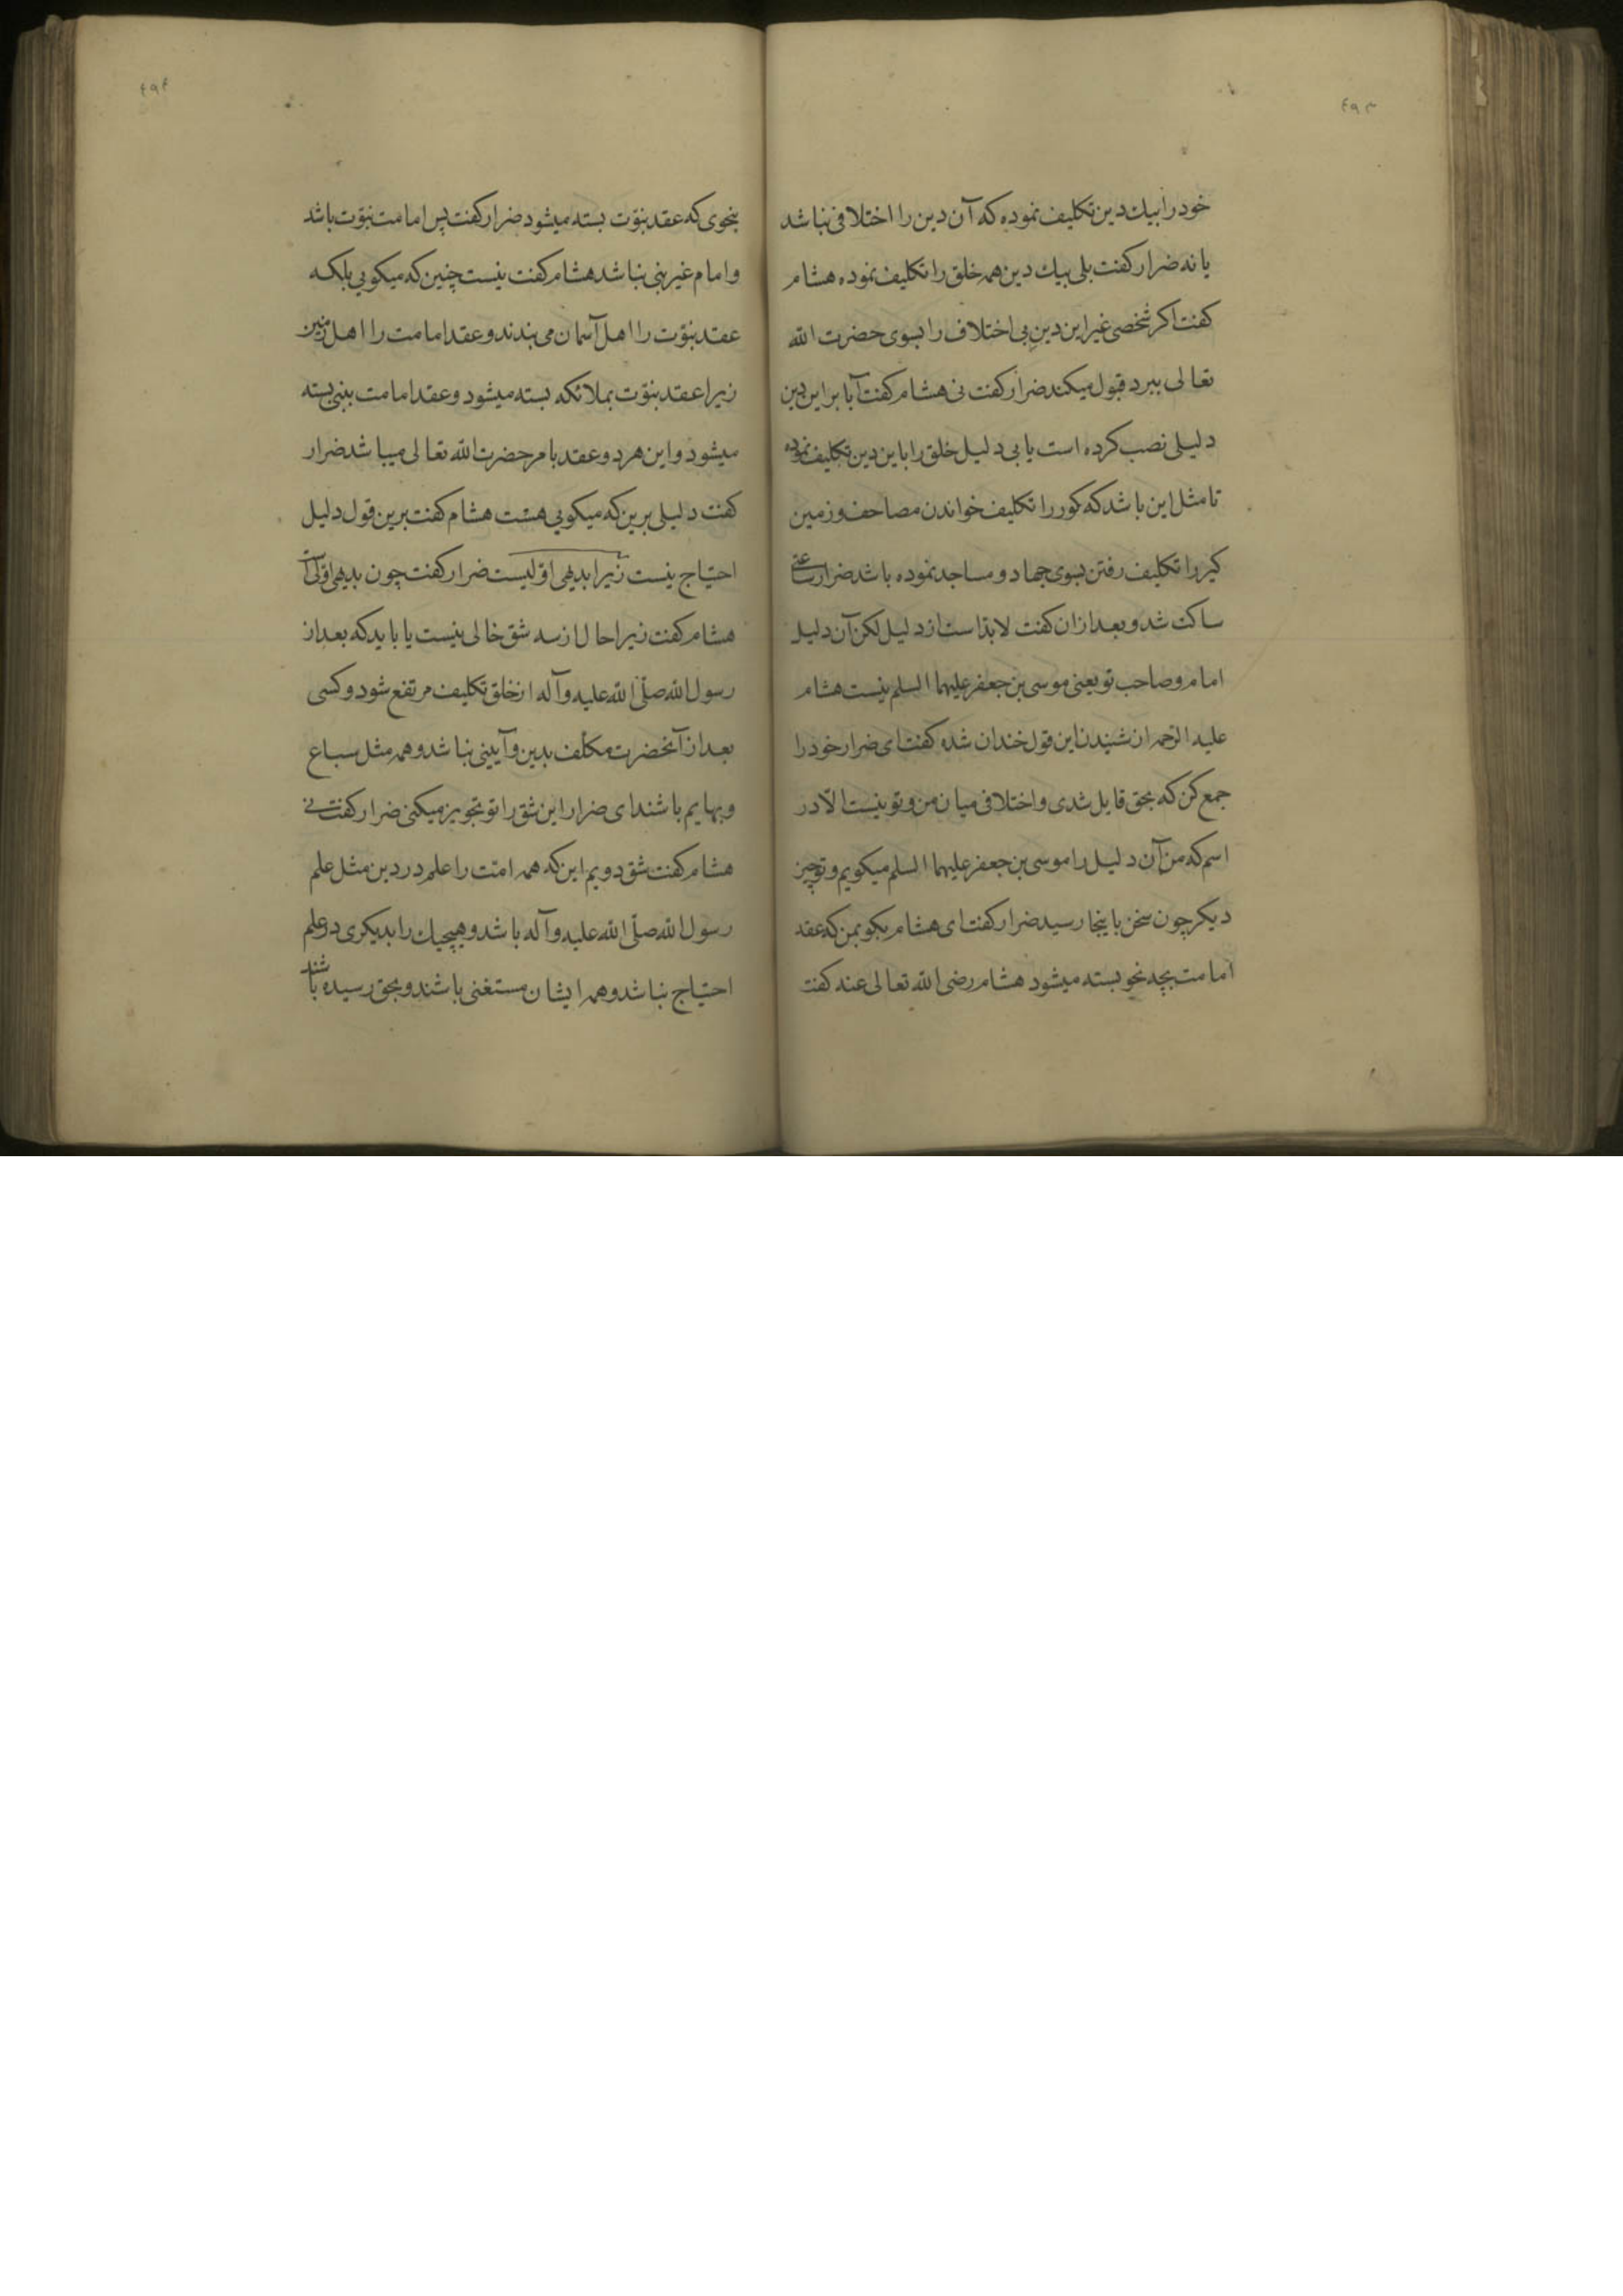 ٤٩٣
خود را بیك دین تکلیف نموده که آن دین را اختلافی نباشد
یا نه ضرار کفت بلی بیك دین همه خلق را تکلیف نموده هشام
کفت اکر شخصی غیر این دین بی اختلاف را بسوی حضرت الله
تعالی ببرد قبول میکند ضرار کفت نی هشام کفت آیا بر این دین
دلیلی نصب کرده است یا بی دلیل خلق را باین دین تکلیف نموده
تا مثل این باشد که کور را تکلیف خواندن مصاحف و زمین
کیر را تکلیف رفتن بسوی جهاد و مساجد نموده باشد ضرار ساعتی
ساکت شد و بعد ازان کفت لابدّ است از دلیل لکن آن دلیل
امام و صاحب تو یعنی موسی بن جعفر علیهما السلم نیست هشام
علیه الرحمه از شنیدن این قول خندان شده کفت ای ضرار خود را
جمع کن که بحق قایل شدی و اختلافی میان من و تو نیست الّا در
اسم که من آن دلیل را موسی بن جعفر علیهما السلم میکویم و تو چیز
دیکر چون سخن باینجا رسید ضرار کفت ای هشام بکو بمن که عقد
امامت بچه نحو بسته میشود هشام رضی الله تعالی عنه کفت
٤٩٤
بنحوی که عقد نبوّت بسته میشود ضرار کفت پس امامت نبوّت باشد
و امام غیر نبی نباشد هشام کفت نیست چنین که میکویی بلکه
عقد نبوّت را اهل آسمان می بندند و عقد امامت را اهل زمین
زیرا عقد نبوّت بملائکه بسته میشود و عقد امامت بنبی بسته
میشود و این هر دو عقد بامر حضرت الله تعالی میباشد ضرار
کفت دلیلی برین که میکویی هست هشام کفت برین قول دلیل
احتیاج نیست زیرا بدیهی اوّلیست ضرار کفت چون بدیهی اوّلی است
هشام کفت زیرا حال از سه شق خالی نیست یا باید که بعد از
رسول الله صلّی الله علیه وآله از خلق تکلیف مرتفع شود و کسی
بعد از آنحضرت مکلّف بدین و آیینی نباشد و همه مثل سباع
و بهایم باشند ای ضرار این شق را تو تجویز میکنی ضرار کفت نی
هشام کفت شق دویم این که همه امّت را علم در دین مثل علم
رسول الله صلّی الله علیه وآله باشد و هیچیك را بدیکری در علم
احتیاج نباشد و همه ایشان مستغنی باشند و بحق رسیده باشند